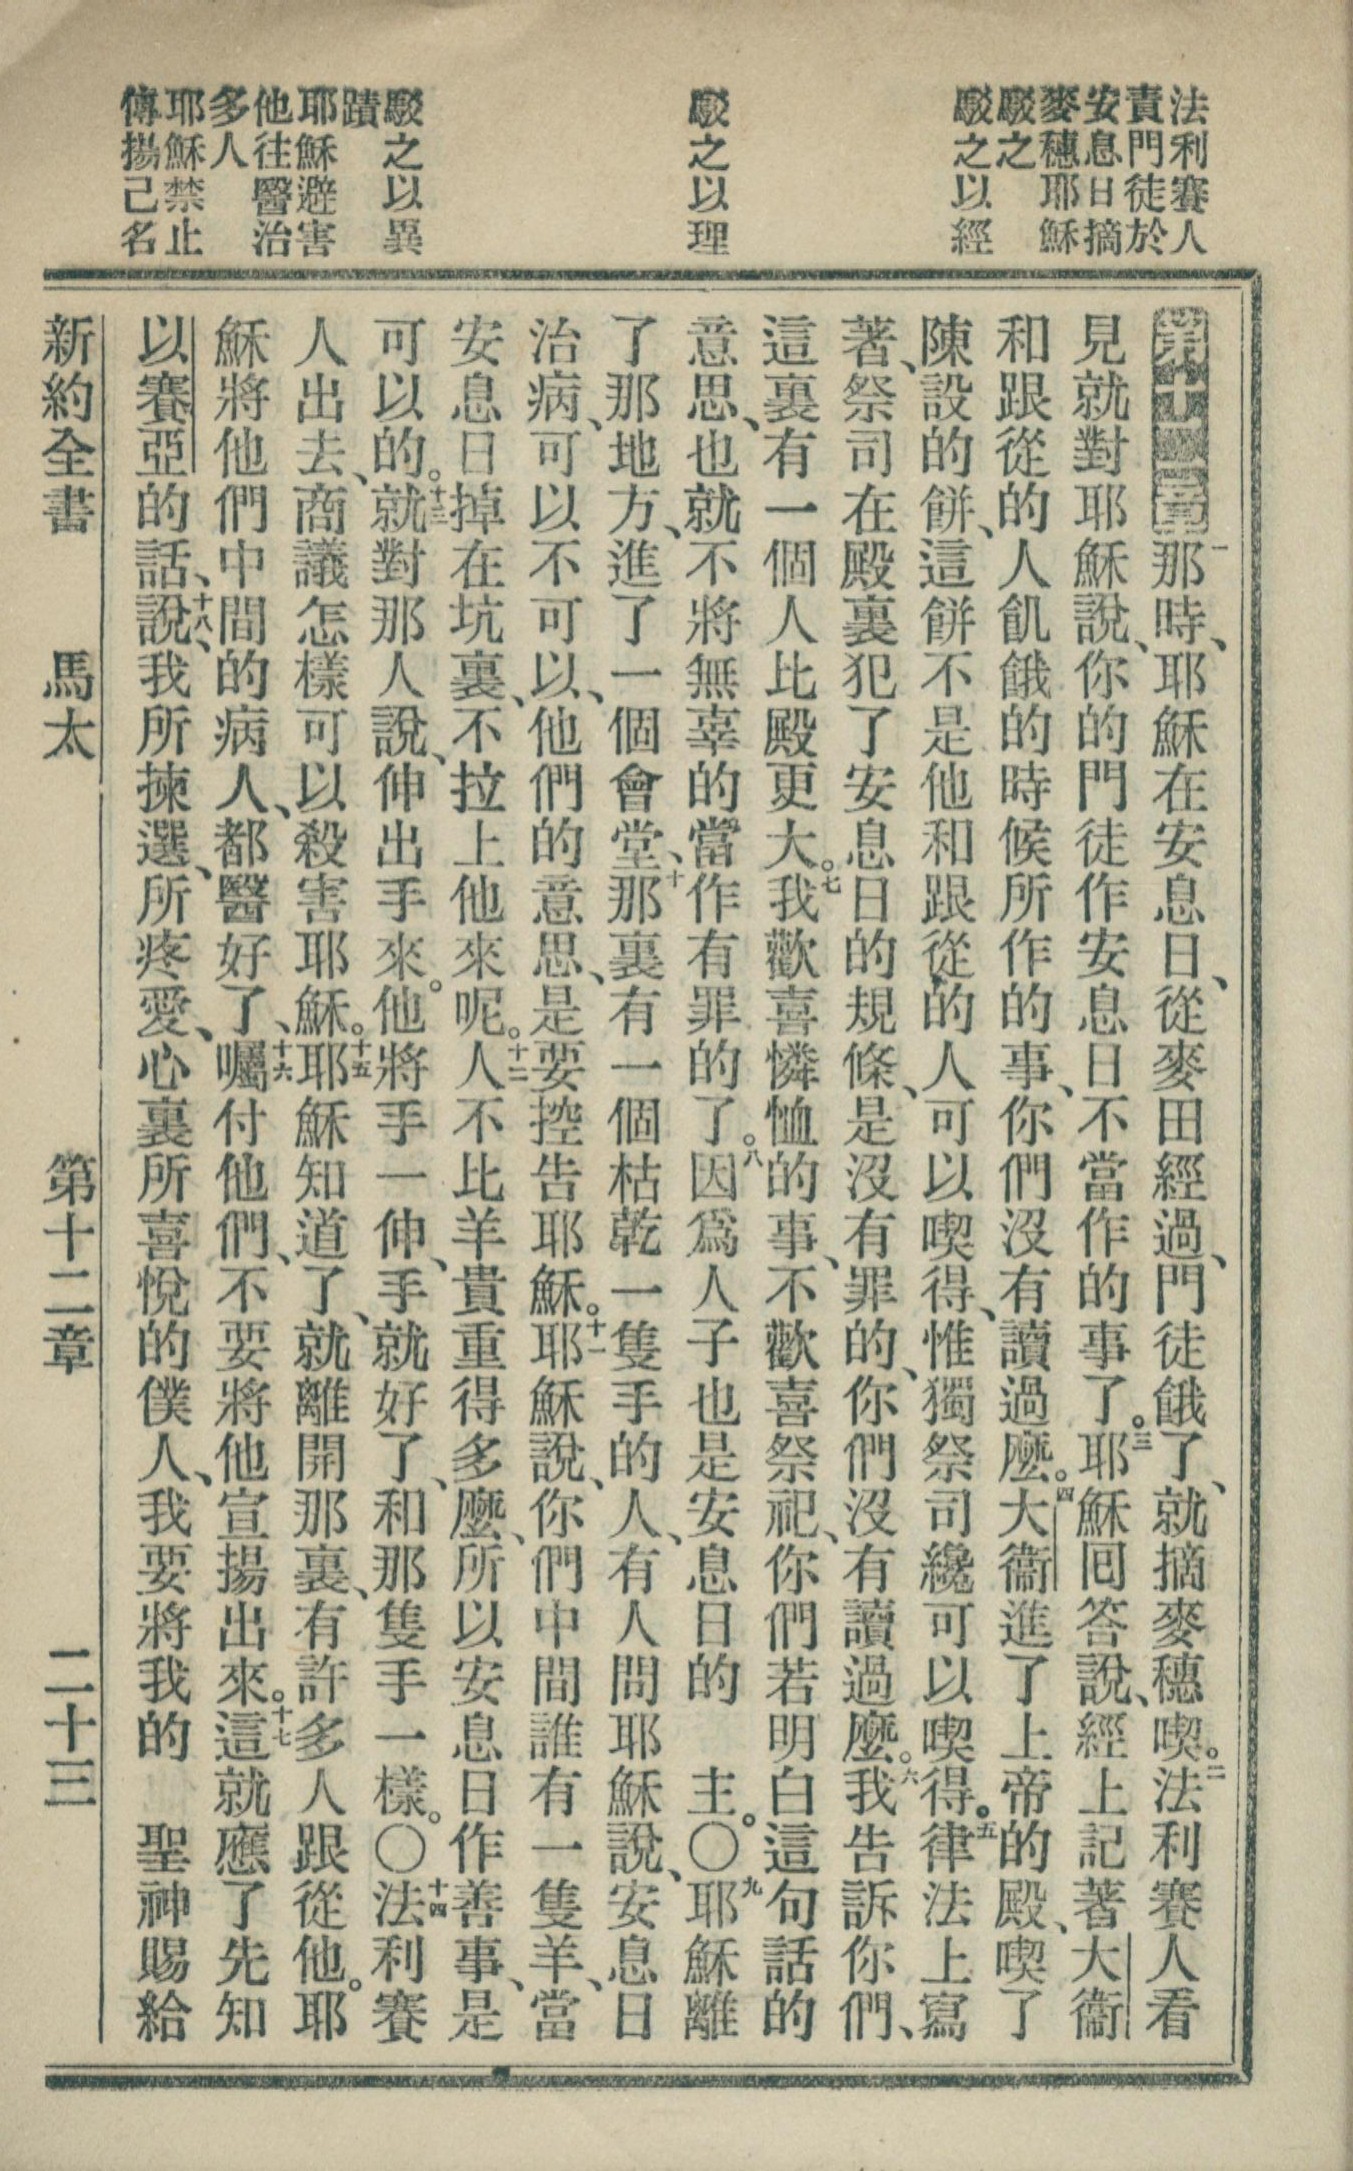 法利賽人
責門徒於
安息日摘
麥穗耶穌
駁之
駁之以經
駁之以理
駁之以異
蹟
耶穌避害
他往醫治
多人
耶穌禁止
傳揚己名
第十二章一那時、耶穌在安息日、從麥田經過、門徒餓了、就摘麥穗喫。二法利賽人看
見就對耶穌說、你的門徒作安息日不當作的事了。三耶穌回答說、經上記著大衞
和跟從的人飢餓的時候所作的事、你們沒有讀過麼。四大衞進了上帝的殿、喫了
陳設的餅、這餅不是他和跟從的人可以喫得、惟獨祭司纔可以喫得。五律法上寫
著、祭司在殿裏犯了安息日的規條、是沒有罪的、你們沒有讀過麼。六我告訴你們、
這裏有一個人比殿更大。七我歡喜憐恤的事、不歡喜祭祀、你們若明白這句話的
意思、也就不將無辜的當作有罪的了。八因爲人子也是安息日的　主。〇九耶穌離
了那地方、進了一個會堂、十那裏有一個枯乾一隻手的人、有人問耶穌說、安息日
治病、可以不可以、他們的意思、是要控告耶穌。十一耶穌說、你們中間誰有一隻羊、當
安息日掉在坑裏、不拉上他來呢。十二人不比羊貴重得多麼、所以安息日作善事、是
可以的。十三就對那人說、伸出手來。他將手一伸、手就好了、和那隻手一樣。〇十四法利賽
人出去、商議怎樣可以殺害耶穌。十五耶穌知道了、就離開那裏、有許多人跟從他。耶
穌將他們中間的病人、都醫好了、十六囑付他們、不要將他宣揚出來。十七這就應了先知
以賽亞的話、十八說、我所揀選、所疼愛、心裏所喜悅的僕人、我要將我的　聖神賜給
新約全書　馬太　第十二章　二十三